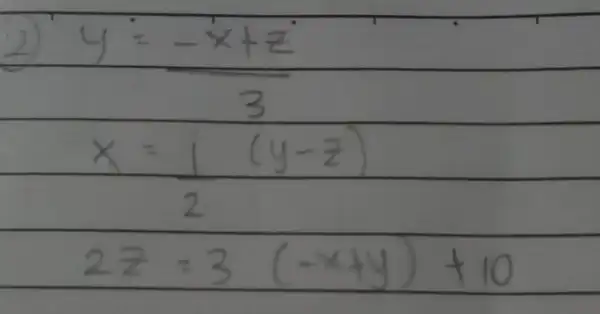 2) y = (-x+z)/3
x = 1/2 (y-z)
2z = 3 (-x+y) + 10